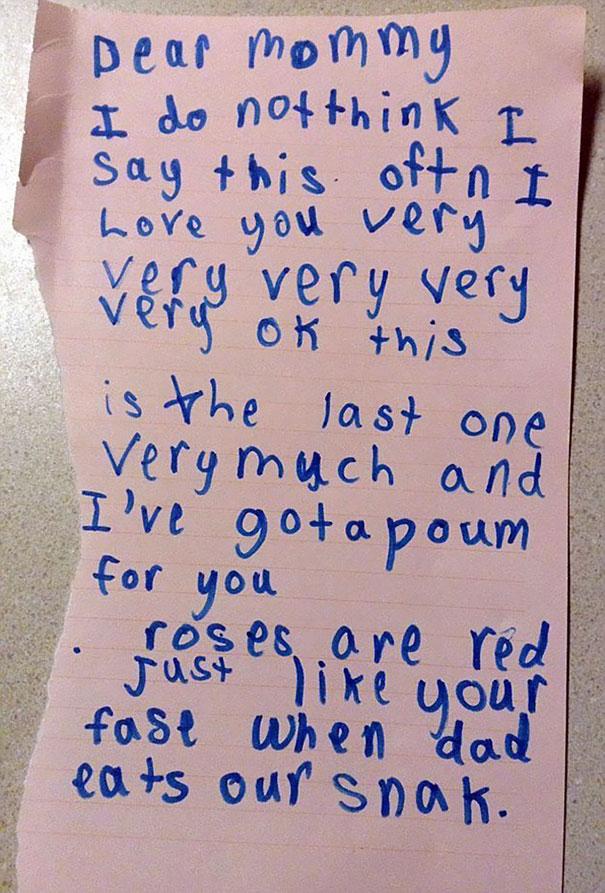 Dear mommy
I do not think I
say this oftn I
Love you very
very very very
very ok this
is the last one
very much and
I've got a poum
for you
. roses are red
Just like your
fase when dad
eats our snak.